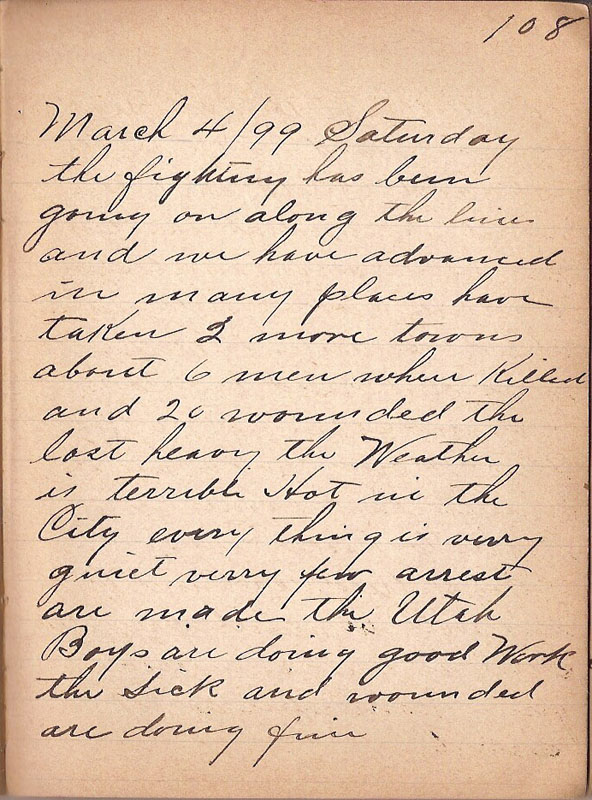 108
March 4/99 Saturday
the fighting has been
going on along the lines
and we have advanced
in many places have
taken 2 more towns
about 6 men wher Killed
and 20 wounded the
lost heavy the Weather
is terrible Hot in the
City every thing is verry
quiet verry few arrest
are made the Utah
Boys are doing good Work
the Sick and wounded
are doing fine